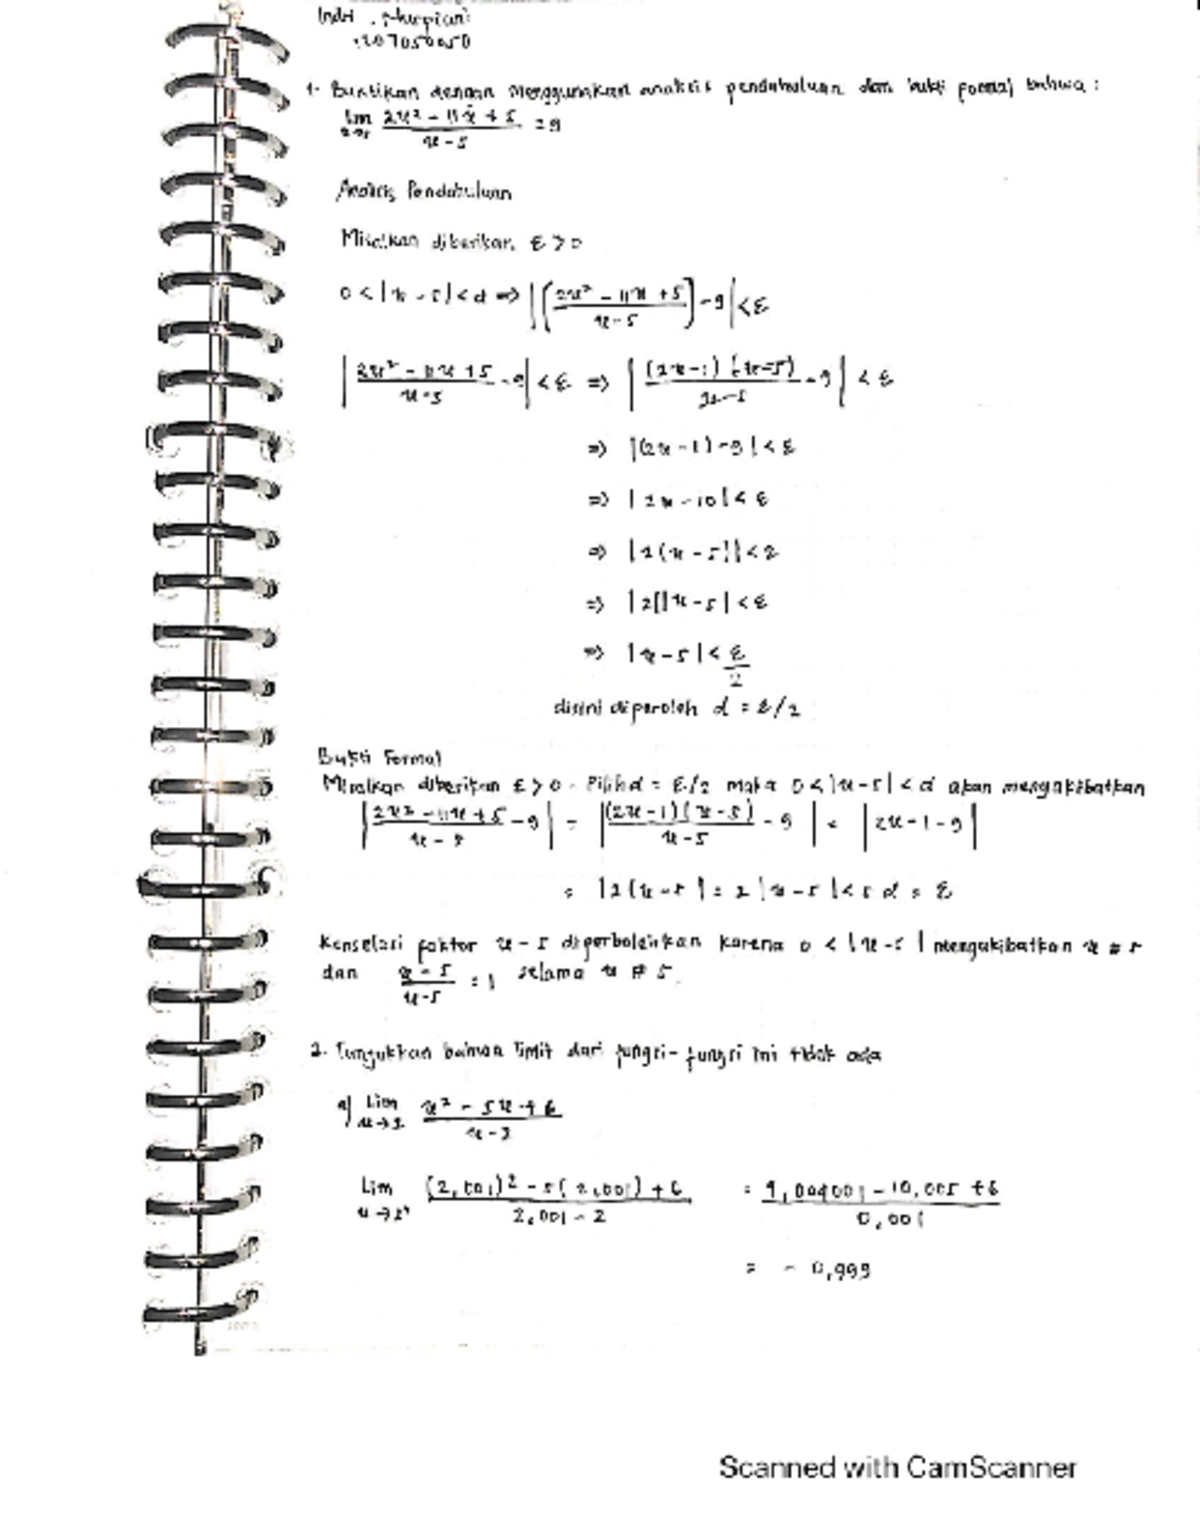 Indri Nurpiani
1207050050
1. Buktikan dengan menggunakan analisis pendahuluan dan bukti formal bahwa :
lim x→5 (2x² - 11x + 5)/(x-5) = 9
Analisis Pendahuluan
Misalkan diberikan ε > 0
0 < |x - 5| < d ⇒ |[(2x² - 11x + 5)/(x-5)] - 9| < ε
|(2x² - 11x + 5)/(x-5) - 9| < ε ⇒ |(2x-1)(x-5)/(x-5) - 9| < ε
⇒ |(2x-1)-9| < ε
⇒ |2x - 10| < ε
⇒ |2(x - 5)| < 2
⇒ |2||x - 5| < ε
⇒ |x - 5| < ε/2
disini diperoleh d = ε/2
Bukti Formal
Misalkan diberikan ε > 0 . Pilih d = ε/2 maka 0 < |x-5| < d akan mengakibatkan
|(2x² - 11x + 5)/(x-5) - 9| = |(2x-1)(x-5)/(x-5) - 9| = |2x-1-9|
= |2(x-5| = 2|x-5| < 5 d = ε
Kanselasi faktor x-5 diperbolehkan karena 0 < |x-5| mengakibatkan x ≠ 5
dan (x-5)/(x-5) = 1 selama x ≠ 5.
2. Tunjukkan bahwa limit dari fungsi-fungsi ini tidak ada
a) Lim x→2 (x² - 5x + 6)/(x-2)
Lim x→2⁺ ((2,001)² - 5(2,001) + 6)/(2,001 - 2) = (4,004001 - 10,005 + 6)/(0,001)
= - 0,999
Scanned with CamScanner